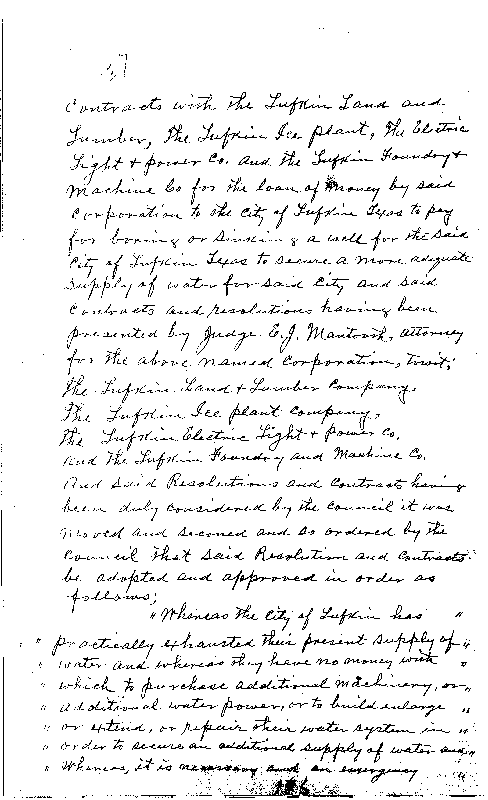 Contracts with the Lufkin Land and
Lumber, The Lufkin Ice plant, The Electric
Light + power Co. and the Lufkin Foundry +
Machine Co for the loan of money by said
Corporation to the City of Lufkin Texas to pay
for boring or sinking a well for the said
City of Lufkin Texas to secure a more adequate
supply of water for said City and said
Contracts and resolutions having been
presented by Judge E.J. Mantooth, attorney
for the above named Corporation, towit;
The Lufkin Land + Lumber Company.
The Lufkin Ice plant Company,
The Lufkin Electric Light + power Co.
And The Lufkin Foundry and Machine Co.
And Said Resolutions and Contracts having
been duly considered by the council it was
moved and seconed and so ordered by the
Council that said Resolution and Contracts
be adopted and approved in order as
follows;
"Whereas the City of Lufkin has "
" practically exhausted their present supply of "
" water and whereas they have no money with "
" which to purchase additional machinery, or "
" additional water power, or to build enlarge "
" or extend, or repair their water system in "
" order to secure an additional supply of water and "
" Whereas, it is necessary and an emergency "